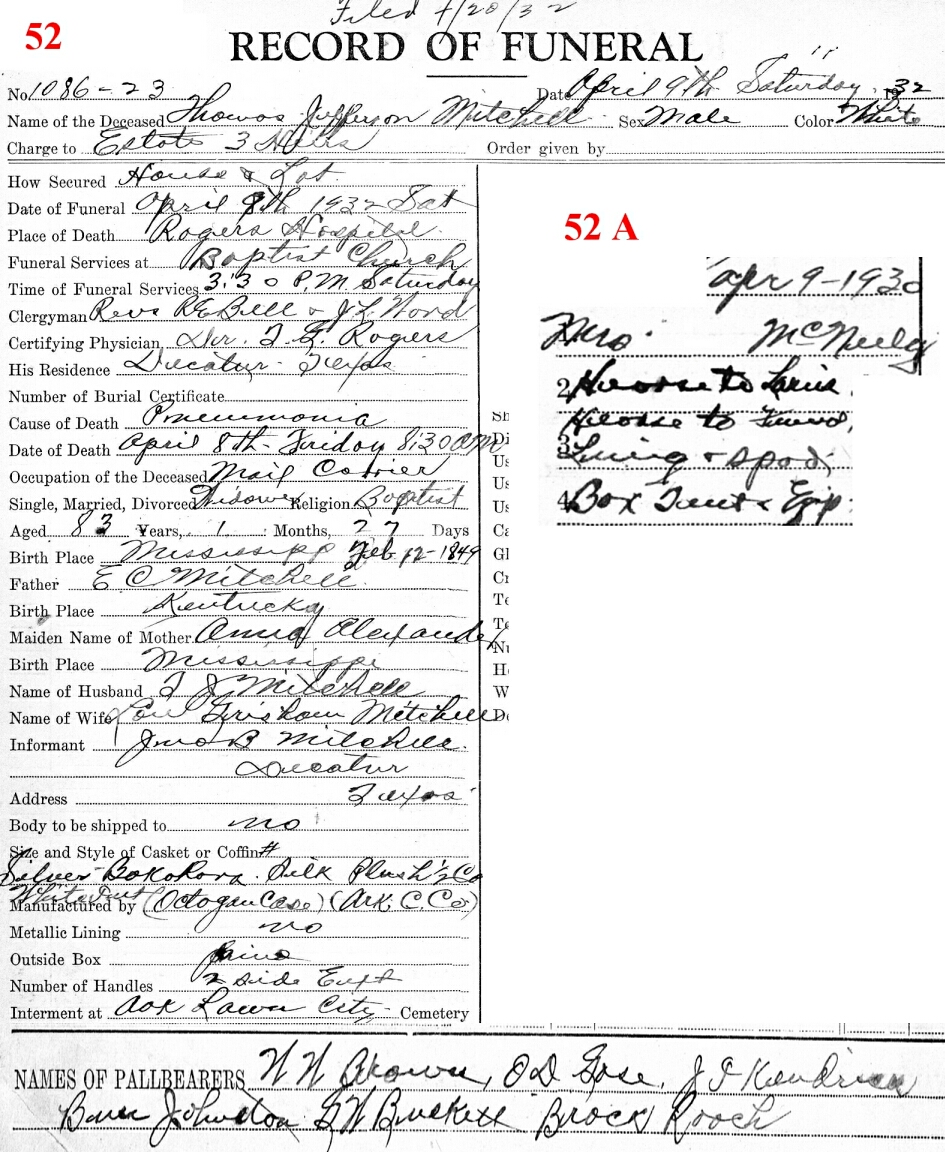 Filed 4/20/32
52
RECORD OF FUNERAL
No. 1086-23 Date April 9th Saturday 1932
Name of the Deceased Thomas Jefferson Mitchell Sex Male Color White
Charge to Estate 3 Heirs Order given by
How Secured House & Lot
Date of Funeral April 9th 1932 Sat
Place of Death Rogers Hospital
Funeral Services at Baptist Church
Time of Funeral Services 3:30 P.M. Saturday
Clergyman Revs R E Bell & J L Ward
Certifying Physician, Dr. T. G. Rogers
His Residence Decatur Texas
Number of Burial Certificate
Cause of Death Pneumonia
Date of Death April 8th - Friday 8:30 A M
Occupation of the Deceased Mail Carrier
Single, Married, Divorced Widower Religion Baptist
Aged 83 Years, 1 Months, 27 Days
Birth Place Mississippi Feb 12-1849
Father E C Mitchell
Birth Place Kentucky
Maiden Name of Mother Anna Alexander
Birth Place Mississippi
Name of Husband T J Mitchell
Name of Wife Lou Grisham Mitchell
Informant Jno B Mitchell
Decatur
Address Texas
Body to be shipped to no
Size and Style of Casket or Coffin #
Silver Silk Plush 1/2 Co
White
Manufactured by (Octogan Case) (Ark. C. Co)
Metallic Lining no
Outside Box pine
Number of Handles 2 side Ext
Interment at Oak Lawn City - Cemetery
52 A
Apr 9-1930
McNeely
2 Hearse to
Hearse to
3 Lining &
4 Box Tent &
Sh
Di
Us
Us
Us
Ca
Gl
Cr
Te
Te
Nu
H
W
D
NAMES OF PALLBEARERS W W Brown, O D Gose, J T Kendrick
Johnston G W Buckett Brock Roach